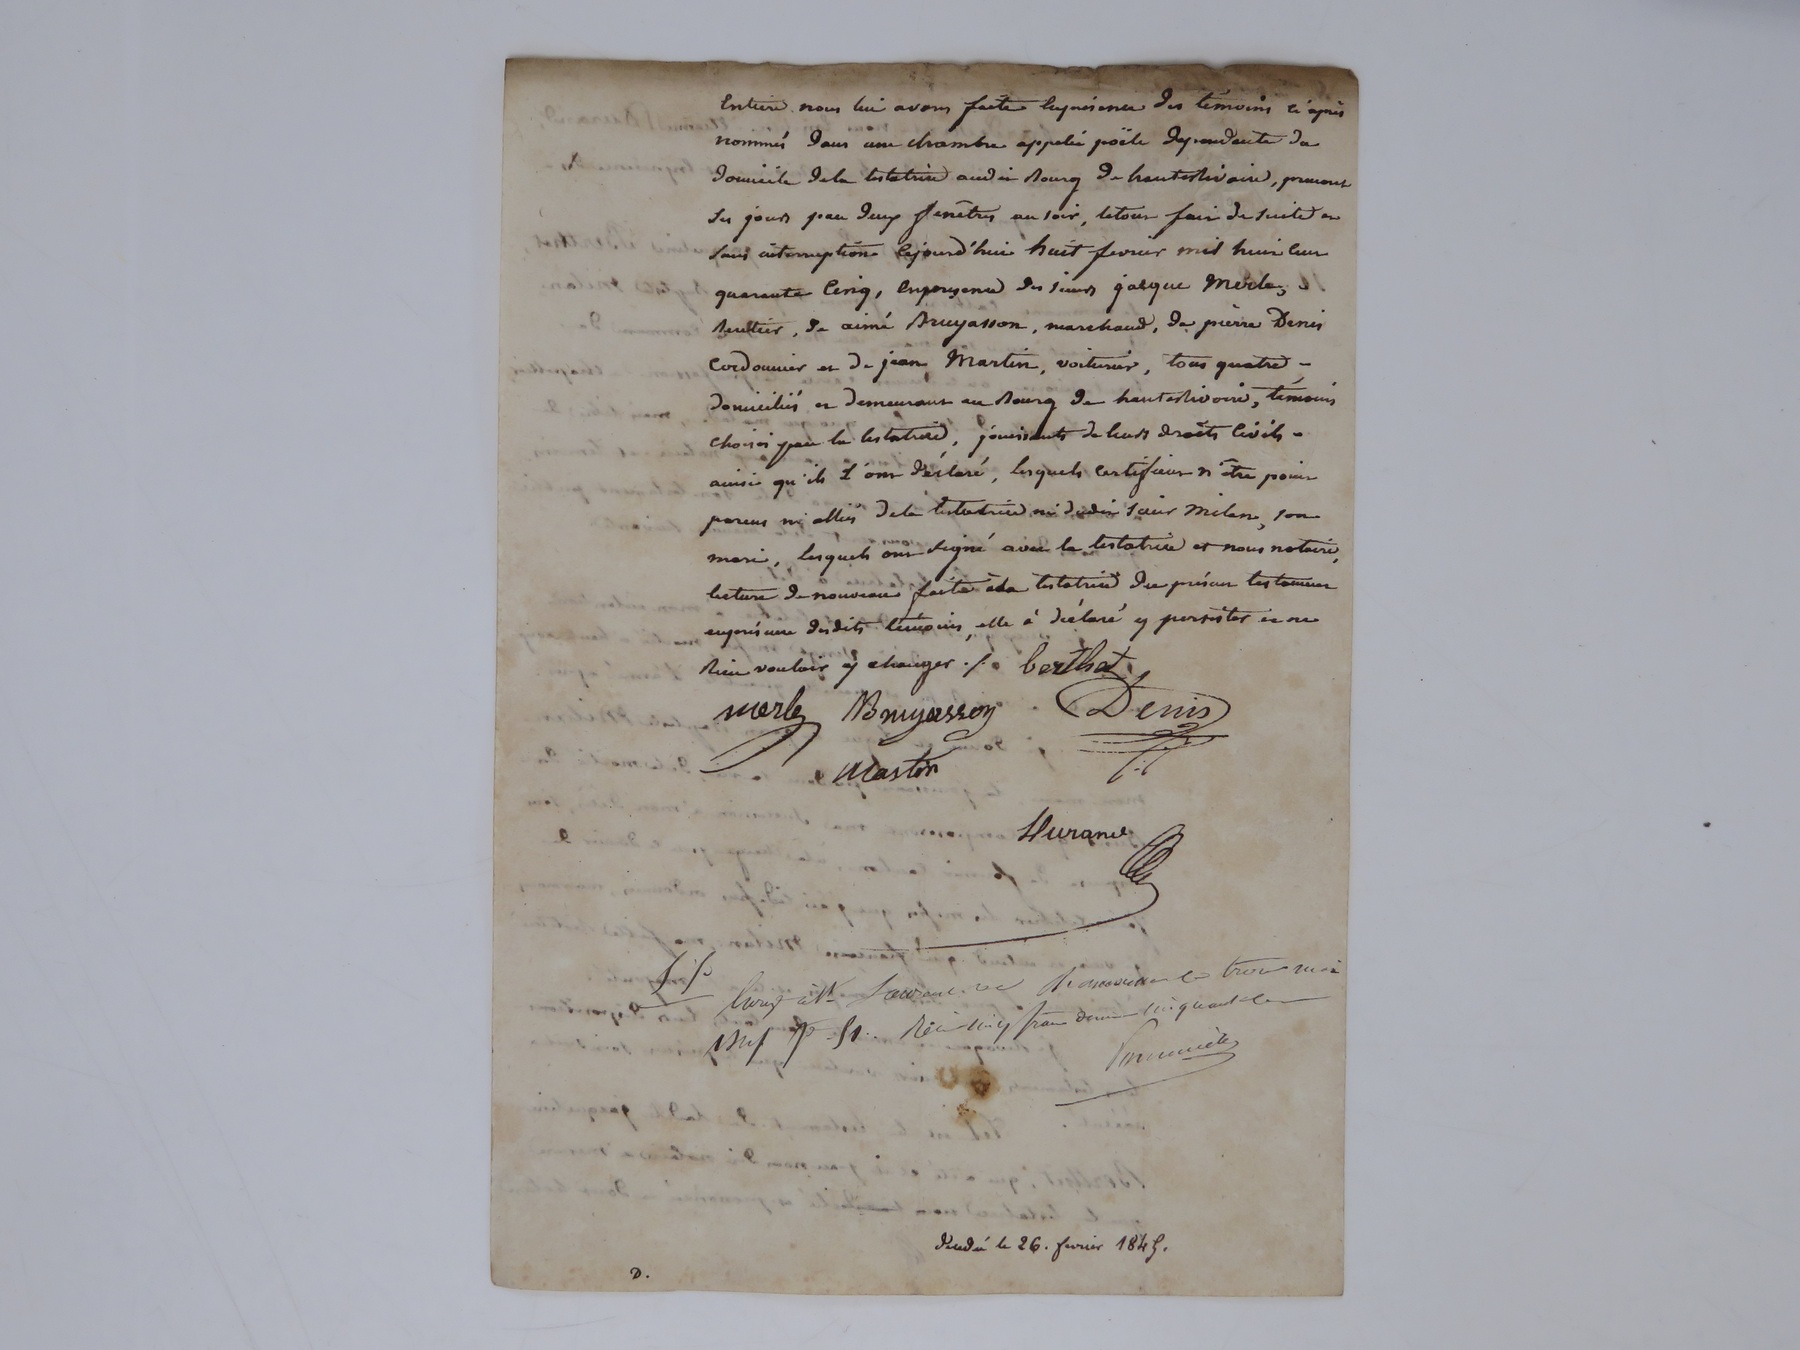 Entiere nous lui avons faite Enprésence des témoins ci après
nommés dans une chambre appelée poële dependante du
domicile dela testatrice audit Bourg de hauterivoire, prenant
ses jours par deux fenêtres au soir, letout fait de suite et
sans interruption Cejourd'hui huit fevrier mil huit cent
quarante Cinq, Enprésence des sieurs jacque Merle,
Rentier, de aimé Bruyasson, marchand, de pierre Denis
Cordonnier et de jean Martin, voiturier, tous quatre
domiciliés et demeurant au Bourg de hauterivoire, témoins
choisis par la testatrice, jouissants de leurs droits Civils
ainsi qu'ils l'ont déclaré, lesquels certifient n'être point
parens ni alliés dela testatrice ni dudit sieur Milan, son
mari, lesquels ont signé avec la testatrice et nous notaire,
lecture de nouveau faite ala testatrice du présent testament
enprésence desdits témoins, elle à déclaré y persister et ne
Rien vouloir y changer ./. berthet
merle Bruyasson Denis
Martin
Durand
le trois mai
Reçu cinq francs
décédé le 26. fevrier 1845.
D.